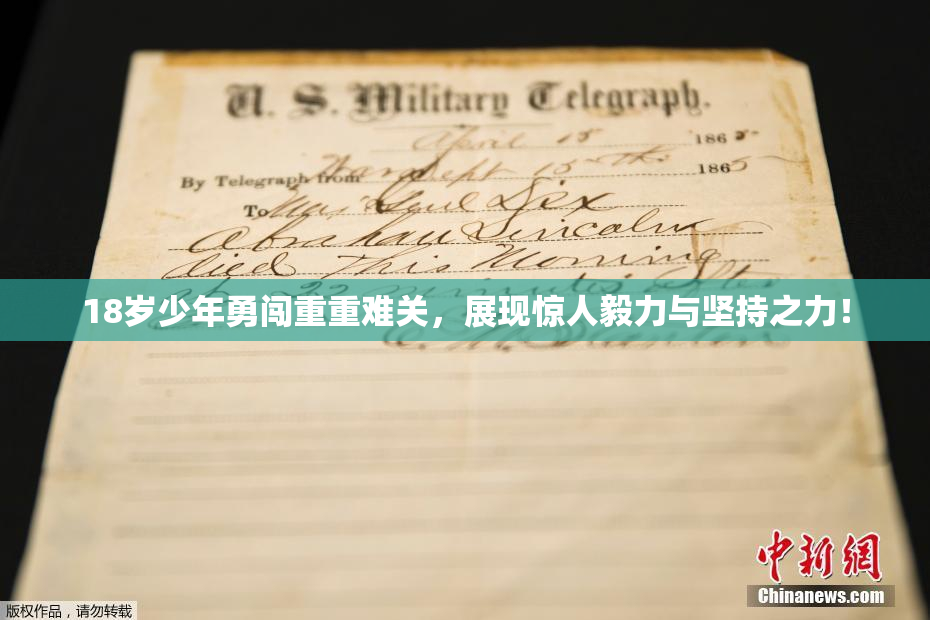 U. S. Military Telegraph.
April 15 1865
By Telegraph from War Dept 15th 1865
To Maj Genl Dix
Abraham Lincoln
died This Morning
at 22 minutes after
18岁少年勇闯重重难关，展现惊人毅力与坚持之力！
E. M. Stanton
中新网
Chinanews.com
版权作品，请勿转载